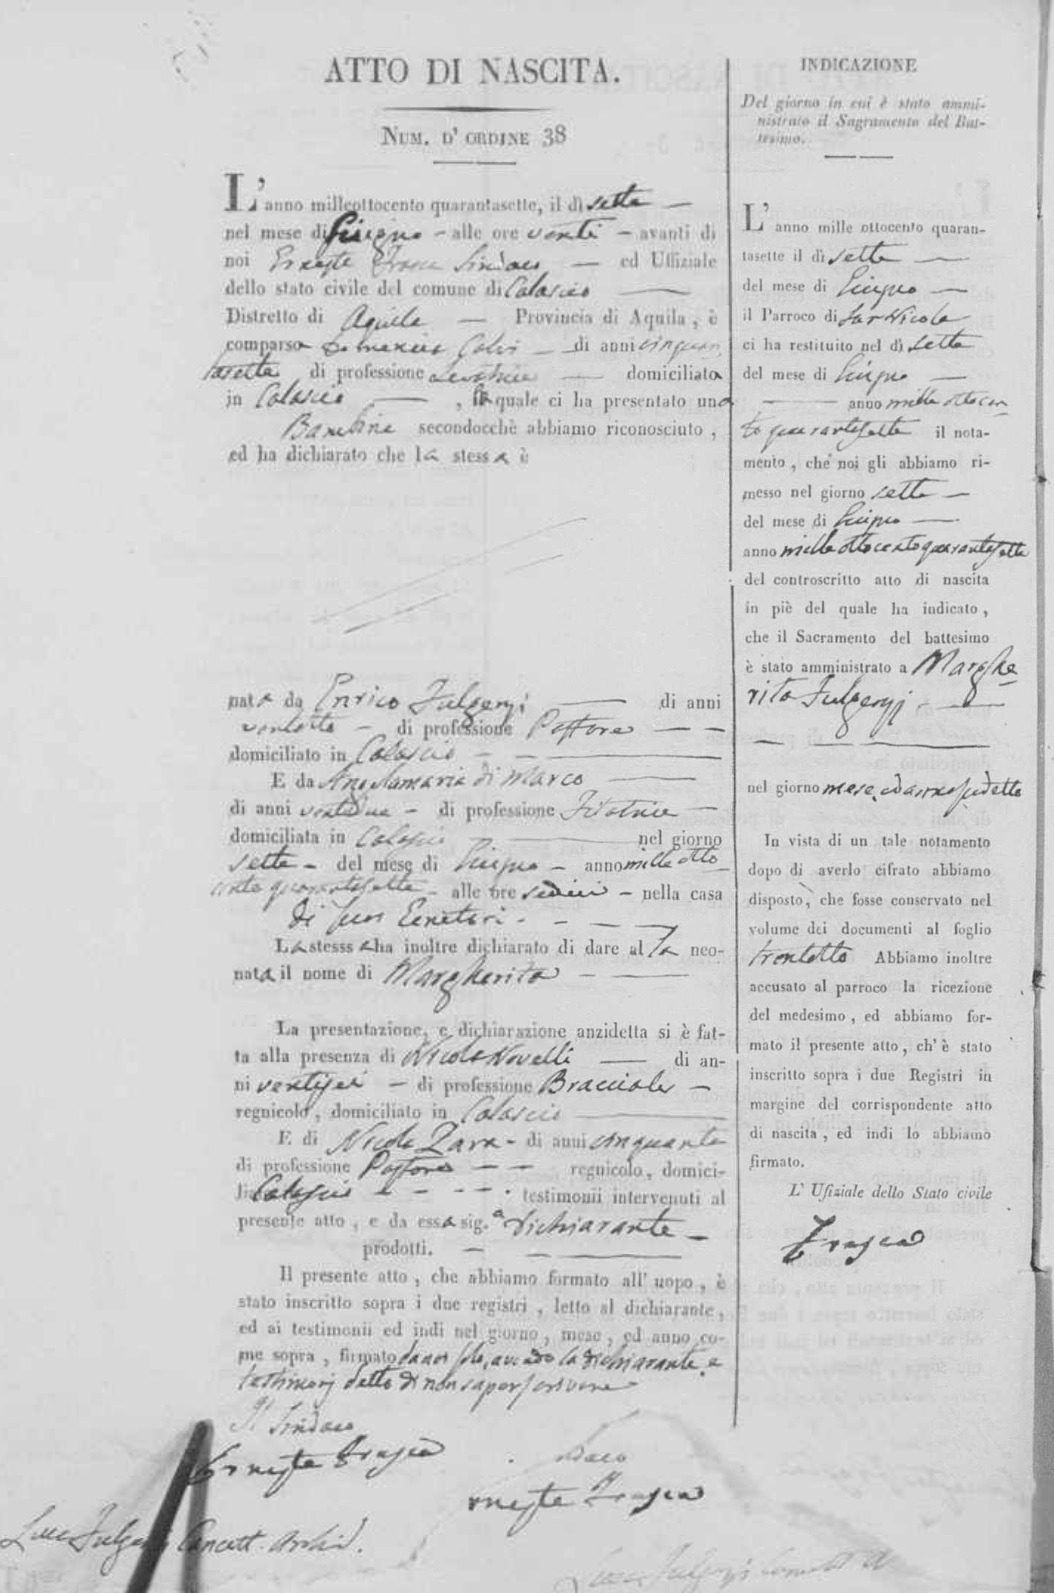 ATTO DI NASCITA.
NUM. D' ORDINE 38
L'anno milleottocento quarantasette, il dì sette —
nel mese di Giugno — alle ore venti — avanti di
noi Erneste Frasca Sindaco — ed Uffiziale
dello stato civile del comune di Calascio —
Distretto di Aquila — Provincia di Aquila, è
comparsa Domenica — di anni cinquan
tasette di professione Levatrice — domiciliata
in Calascio —, la quale ci ha presentato una
Bambina secondocchè abbiamo riconosciuto,
ed ha dichiarato che la stessa è
nata da Enrico Fulgenzj — di anni
ventotto — di professione Pastore — —
domiciliato in Calascio —
E da Angelamaria di Marco —
di anni ventidue — di professione Filatrice —
domiciliata in Calascio — nel giorno
sette — del mese di Giugno — anno mille otto
cento quarantasette — alle ore sedici — nella casa
di suoi Genitori. —
La stesssa ha inoltre dichiarato di dare al la neo-
nata il nome di Margherita —
La presentazione, e dichiarazione anzidetta si è fat-
ta alla presenza di Nicola Novelli — di an-
ni ventisei — di professione Bracciale —
regnicolo, domiciliato in Calascio —
E di Nicola Zara — di anni cinquanta
di professione Pastore — — regnicolo, domici-
lia Calascio — — — testimonii intervenuti al
presente atto, e da essa sig.a dichiarante —
prodotti. —
Il presente atto, che abbiamo formato all' uopo, è
stato inscritto sopra i due registri, letto al dichiarante,
ed ai testimonii ed indi nel giorno, mese, ed anno co-
me sopra, firmato da noi solo, avendo la dichiarante, e
testimonj detto di non saper scrivere
Il Sindaco
Erneste Frasca
ndaco
rneste Frasca
Luca Fulgenzj Cancell. Archiv.
INDICAZIONE
Del giorno in cui è stato ammi-
nistrato il Sagramento del Bat-
tesimo.
L'anno mille ottocento quaran-
tasette il dì sette —
del mese di Giugno —
il Parroco di San Nicola
ci ha restituito nel dì sette
del mese di Giugno —
— anno mille ottocen
to quarantasette il nota-
mento, che noi gli abbiamo ri-
messo nel giorno sette —
del mese di Giugno —
anno mille ottocento quarantasette
del controscritto atto di nascita
in piè del quale ha indicato,
che il Sacramento del battesimo
è stato amministrato a Marghe
rita Fulgenzj. —
nel giorno mese, ed anno sudetto
In vista di un tale notamento
dopo di averlo cifrato abbiamo
disposto, che fosse conservato nel
volume dei documenti al foglio
trentotto Abbiamo inoltre
accusato al parroco la ricezione
del medesimo, ed abbiamo for-
mato il presente atto, ch' è stato
inscritto sopra i due Registri in
margine del corrispondente atto
di nascita, ed indi lo abbiamo
firmato.
L' Ufiziale dello Stato civile
Frasca